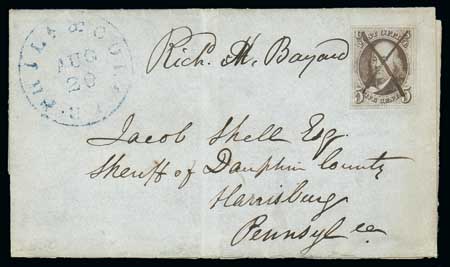 PHILA & COLA R.R.
AUG
20
Rich. H. Bayard
POST OFFICE
5 5
FIVE CENTS
Jacob Shell Esq.
Sheriff of Dauphin County
Harrisburg
Pennsyl